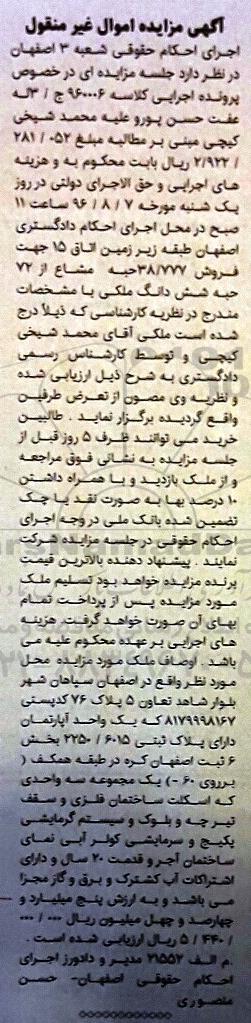 آگهی مزایده اموال غیر منقول
اجرای احکام حقوقی شعبه ۳ اصفهان
در نظر دارد جلسه مزایده ای در خصوص
پرونده اجرایی کلاسه ۹۶۰۰۰۶ ج / ۳له
عفت حسن پورو علیه محمد شیخی
کیچی مبنی بر مطالبه مبلغ ۰۵۲ / ۲۸۱
/ ۲/۹۲۲ ریال بابت محکوم به و هزینه
های اجرایی و حق الاجرای دولتی در روز
یک شنبه مورخه ۷ / ۸ / ۹۶ ساعت ۱۱
صبح در محل اجرای احکام دادگستری
اصفهان طبقه زیر زمین اتاق ۱۵ جهت
فروش ۳۸/۷۷۷حبه مشاع از ۷۲
حبه شش دانگ ملکی با مشخصات
مندرج در نظریه کارشناسی که ذیلاً درج
شده است ملکی آقای محمد شیخی
کیچی و توسط کارشناس رسمی
دادگستری به شرح ذیل ارزیابی شده
و نظریه وی مصون از تعرض طرفین
واقع گردیده برگزار نماید . طالبین
خرید می توانند ظرف ۵ روز قبل از
جلسه مزایده به نشانی فوق مراجعه
و از ملک بازدید و با همراه داشتن
۱۰ درصد بها به صورت نقد یا چک
تضمین شده بانک ملی در وجه اجرای
احکام حقوقی در جلسه مزایده شرکت
نمایند . پیشنهاد دهنده بالاترین قیمت
برنده مزایده خواهد بود تسلیم ملک
مورد مزایده پس از پرداخت تمام
بهای آن صورت خواهد گرفت. هزینه
های اجرایی بر عهده محکوم علیه می
باشد . اوصاف ملک مورد مزایده محل
مورد نظر واقع در اصفهان سپاهان شهر
بلوار شاهد تعاون ۵ پلاک ۷۶ کدپستی
۸۱۷۹۹۹۸۱۶۷ که یک واحد آپارتمان
دارای پلاک ثبتی ۶۰۱۵ / ۲۲۵۰ بخش
۶ ثبت اصفهان کره در طبقه همکف (
برروی ۶۰ -) یک مجموعه سه واحدی
که اسکلت ساختمان فلزی و سقف
تیر چه و بلوک و سیستم گرمایشی
پکیج و سرمایشی کولر آبی نمای
ساختمان آجر و قدمت ۲۰ سال و دارای
اشتراکات آب کشترک و برق و گاز مجزا
می باشد و به ارزش پنج میلیارد و
چهارصد و چهل میلیون ریال ۰۰۰ / ۰۰۰
/ ۴۴۰ / ۵ ریال ارزیابی شده است .
.م الف ۲۱۵۵۲ مدیر و دادورز اجرای
احکام حقوقی اصفهان- حسن
منصوری